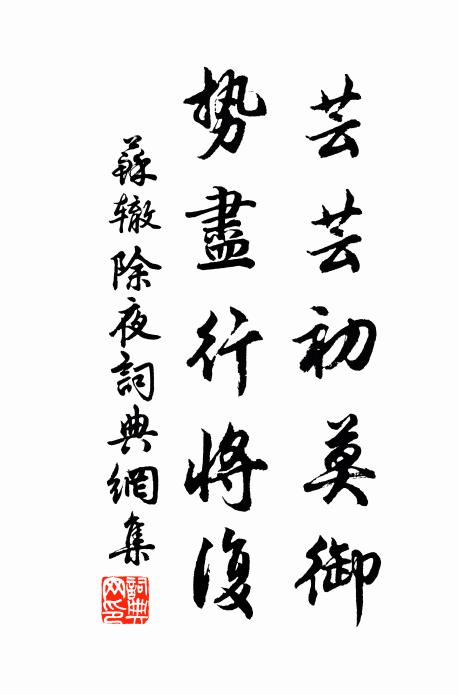 芸芸初莫御
势盡行将復
蘇辙除夜詞典網集
詞典网印